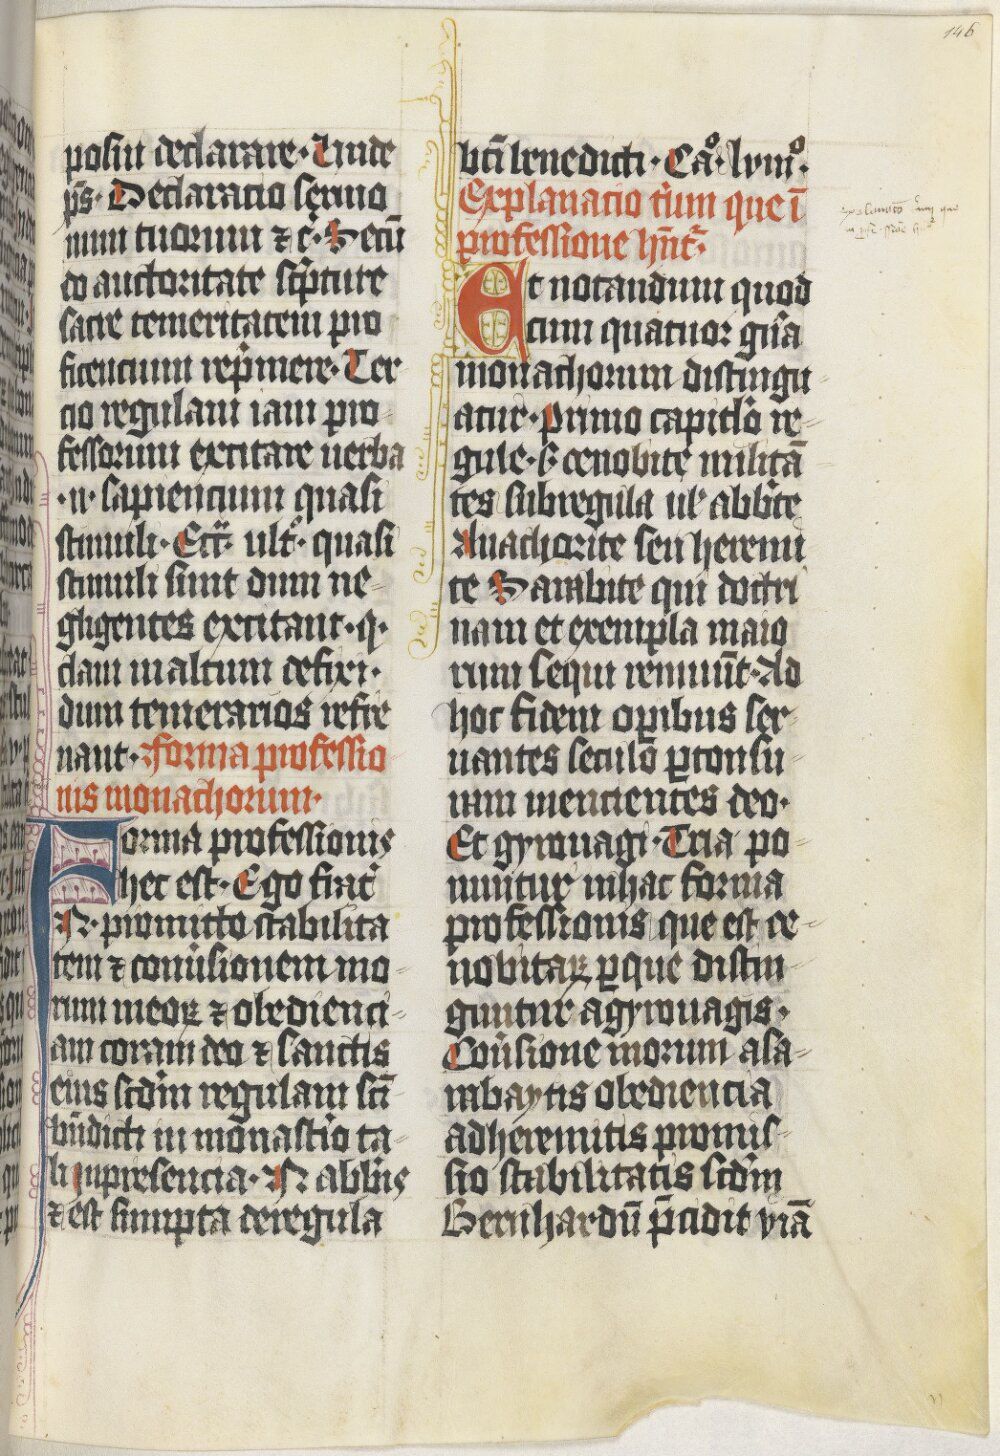 146
posui declarare. Unde
p̄s. Declaracio sermo
num tuorum ⁊ c̄. Secū
do auctoritate sc̄pture
sacre temeritatem pro
ficencium rep̄mere. Ter-
cio regulam iam pro-
fessorum excitare uerba
.n. sapiencium quasi
stimuli. Ecc̄. ult̊. quasi
stimuli sunt dum ne-
gligentes excitant. q.
clam in altum defixi.
dum temerarios refre
nant. Forma professio
nis monachorum.
Forma professionis
hec est. Ego frat̄
N. promitto stabilita
tem ⁊ conūsionem mo-
rum meoꝝ ⁊ obedienci-
am coram deo ⁊ sanctis
eius scdm̄ regulam sc̄i
bn̄dicti in monast̄io ta-
li inpresencia. N abbīs
⁊ est sumpta deregula
bt̄i benedicti. Cå. lviii̊.
Explanacio t̄ium que ī
professione hn̄t̄.
Et notandum quod
cum quatuor gn̄a
monachorum distingu
atur. primo capitl̄o re-
gule. s̄ cenobite militā
tes subregula ul̄ abb̄te
Anachorite seu heremi
te Sarabite qui doctri
nam et exempla maio
rum sequi renuūt. Ad
hoc fidem oꝑibus ser-
uantes secul̄o ꝑtonsu-
ram mencientes deo.
Et gyrouagi. Tria po
nuntur inhac forma
professionis que est ce-
nobitaꝝ ꝑque distin-
guntur agyrouagis.
Conūsione morum asa-
rabaytis obediencia
adheremitis promis-
sio stabilitatis scdm̄
Bernhardū p̄cidit viā